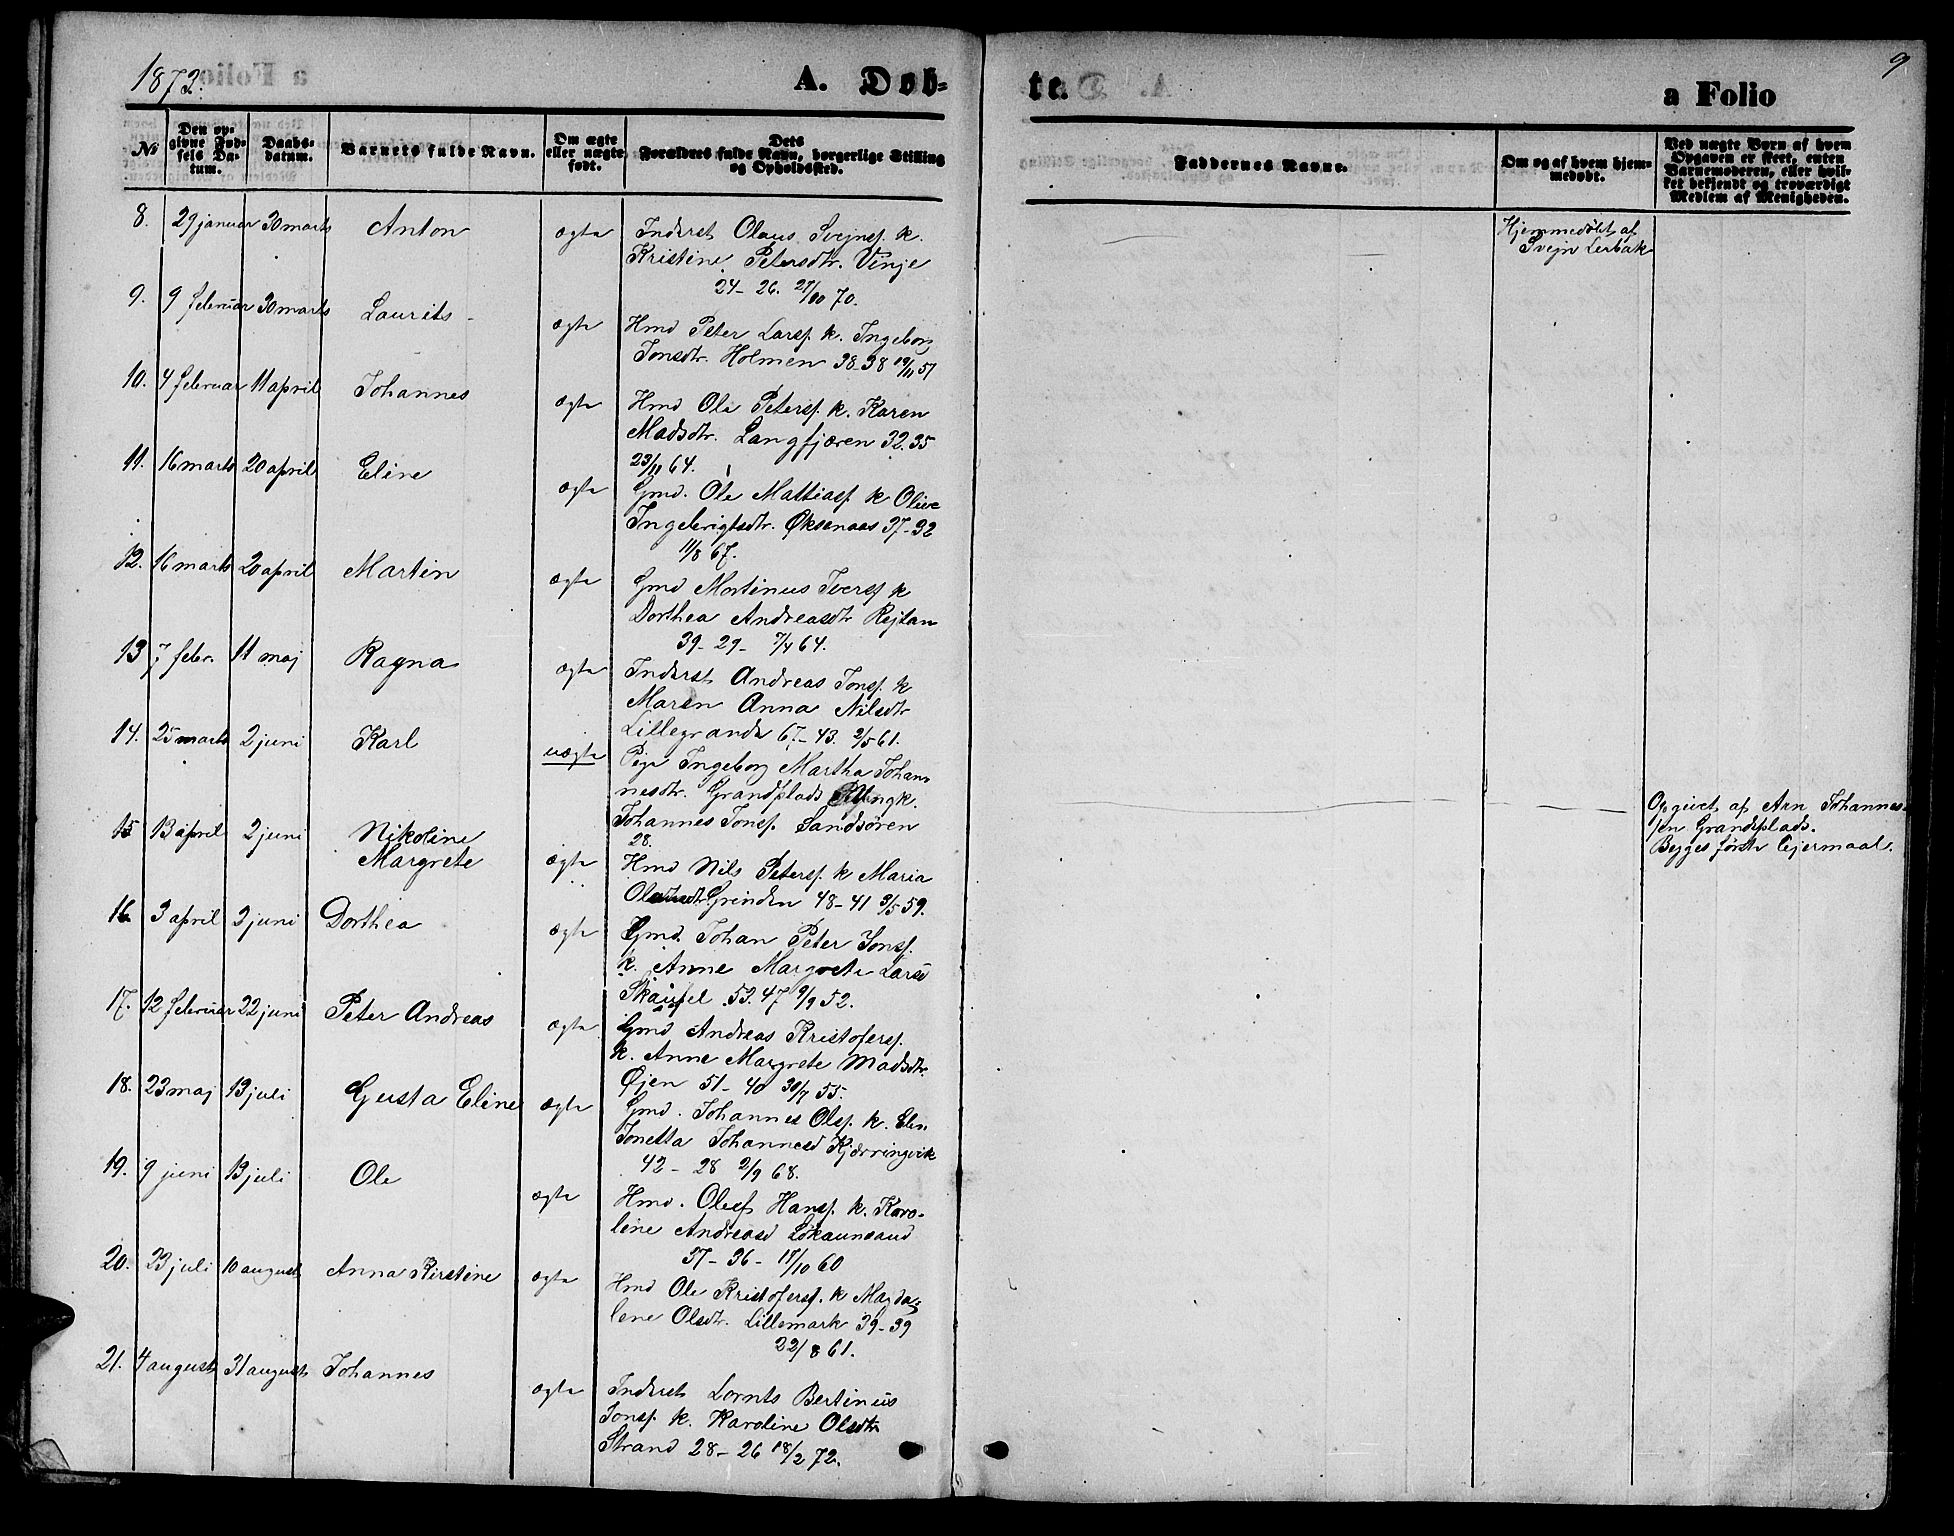 1873.
A. Døb-
te.
a Folio
9
No
Den op-
givne Fød-
sels Da-
tum.
Daabs-
datum.
Barnets fulde Navn.
Om ægte
eller uægte
født.
Dets
Forældres fulde Navn, borgerlige Stilling
og Opholdssted.
Faddernes Navne.
Om og af hvem hjem-
medøbt.
Ved uægte Børn af hvem
Opgaven er skeet, enten
Barnemoderen, eller hvil-
ket bekjendt og troværdigt
Medlem af Menigheden.
8. 29 januar 30 marts Anton ægte Inderst Olaus Svejnsf. k.
Kristine Petersdtr. Vinje
24-26. 27/10 70.
Hjemmedøbt af
Svejn Lerbak
9. 9 februar 30 marts Laurits ægte Hmd Peter Larsf. k. Ingeborg
Jonsdtr. Holmen 38-38 19/11 57
10. 4 februar 11 april Johannes ægte Hmd Ole Petersf. k. Karen
Madsdtr. Langfjæren 32.35
23/11 64.
11. 16 marts 20 april Eline ægte Gmd. Ole Mattiasf. k Olive
Ingebrigtsdtr. Øksenaas 37-32
11/8 67.
12. 16 marts 20 april Martin ægte Gmd Mortinus Iversf k
Dorthea Andreasdtr Rejtan
39-29- 7/4 64.
13 7 febr. 11 maj Ragna ægte Inderst Andreas Jonsf. k
Maren Anna Nilsdtr
Lillegrande 67-43. 2/5 61.
14. 25 marts 2 juni Karl uægte Pige Ingeborg Martha Johan-
nesdtr. Grandplads Ungk.
Johannes Jonsf. Sandsøren
28.
Opgivet af Arn Johannes-
sen Grandsplads.
Begges første Lejermaal.
15 13 april 2 juni Nikoline
Margrete ægte Hmd Nils Petersf. k Maria
Grinden 48-41 3/5 59.
16 3 april 2 juni Dorthea ægte Gmd. Johan Peter Jonsf.
k. Anne Margrete Larsd
Skaufel 53.47 9/9 52.
17. 12 februar 22 juni Peter Andreas ægte Gmd Andreas Kristofersf.
k. Anne Margrete Madsdtr.
Øjen 51-40 30/7 55.
18. 23 maj 13 juli Gusta Eline ægte Gmd. Johannes Olsf. k. Elen
Jonetta Johannesd Kjerringvik
42-28 2/9 68.
19. 9 juni 13 juli Ole ægte Hmd. Oluf Hansf. k. Karo-
line Andreasd Løkaunsaud
37-36- 17/10 60
20. 23 juli 10 august Anna Kirstine ægte Hmd Ole Kristofersf. k Magda-
lene Olsdtr. Lillemark 39-39
22/8 61.
21. 4 august 31 august Johannes ægte Inderst Lornts Bertinus
Jonsf. k. Karoline Olsdtr
Strand 28-26 18/2 72.